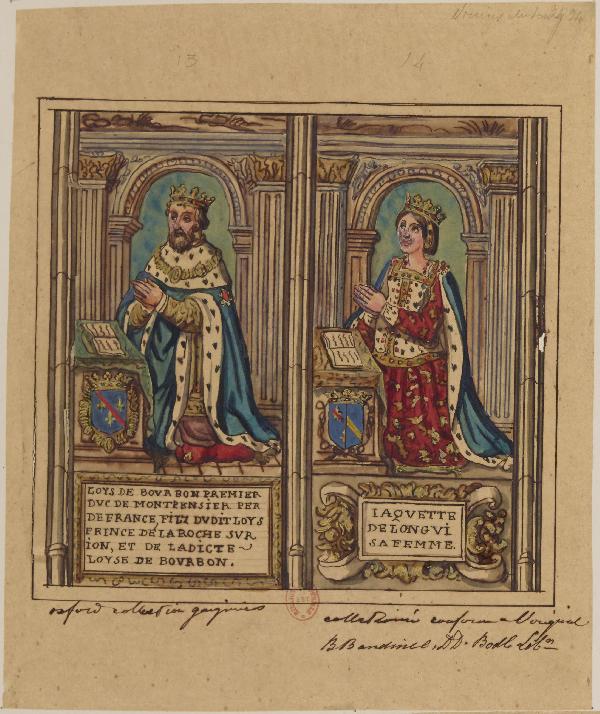 13
14
LOYS DE BOVRBON PREMIER
DVC DE MONTPENSIER PER
DE FRANCE, FILZ DVDIT LOYS
PRINCE DE LA ROCHE SVR
ION, ET DE LADICTE~
LOYSE DE BOVRBON.
IAQVETTE
DE LONGVI
SA FEMME.
oxford collection gaignières
collationné conforme à l'original
B Bandinel, DD. Bodl. Libn